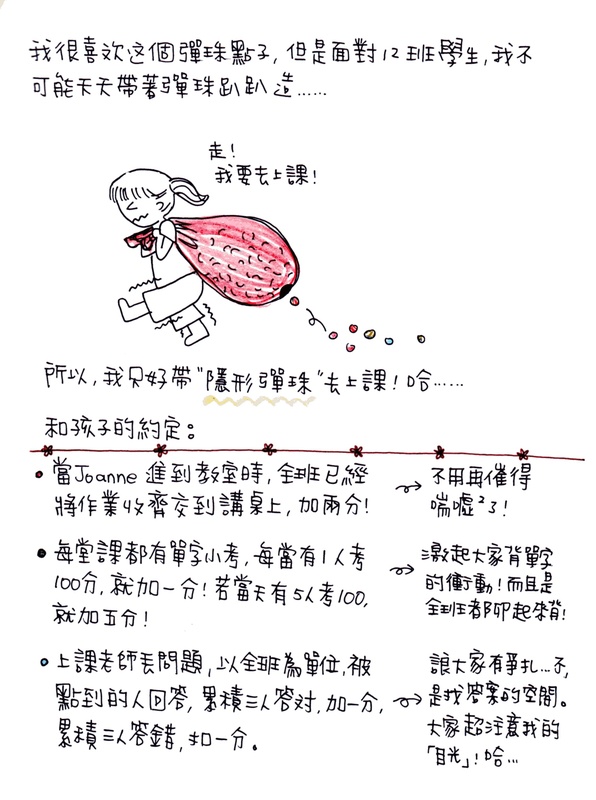 我很喜欢这個彈珠點子, 但是面對12班學生, 我不
可能天天帶著彈珠趴趴造......
走!
我要去上課!
所以, 我只好帶"隱形彈珠"去上課! 哈......
和孩子的約定:
• 當Joanne 進到教室時, 全班已經
將作業收齊交到講桌上, 加兩分!
不用再催得
喘噓²了!
• 每堂課都有單字小考, 每當有1人考
100分, 就加一分! 若當天有5人考100,
就加五分!
激起大家背單字
的衝動! 而且是
全班都卯起來背!
• 上課老師丟問題, 以全班為單位, 被
點到的人回答, 累積三人答对, 加一分,
累積三人答錯, 扣一分。
讓大家有爭扎...
是找答案的空間。
大家超注意我的
「目光」! 哈...